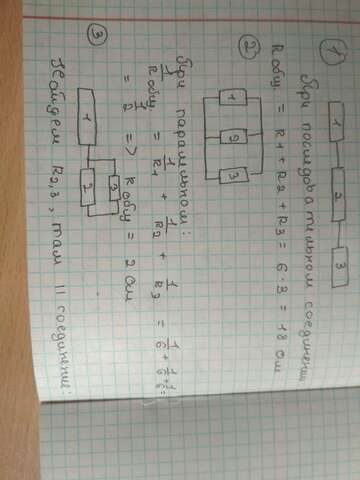 ①
1 2 3
При последовательном соединении
Rобщ = R1 + R2 + R3 = 6 · 3 = 18 Ом
②
1
2
3
При паралельном:
1/Rобщ = 1/R1 + 1/R2 + 1/R3 = 1/6 + 1/6 + 1/6 =
= 1/2 => Rобщ = 2 Ом
③
1 2 3
Найдем R2,3, там || соединение: